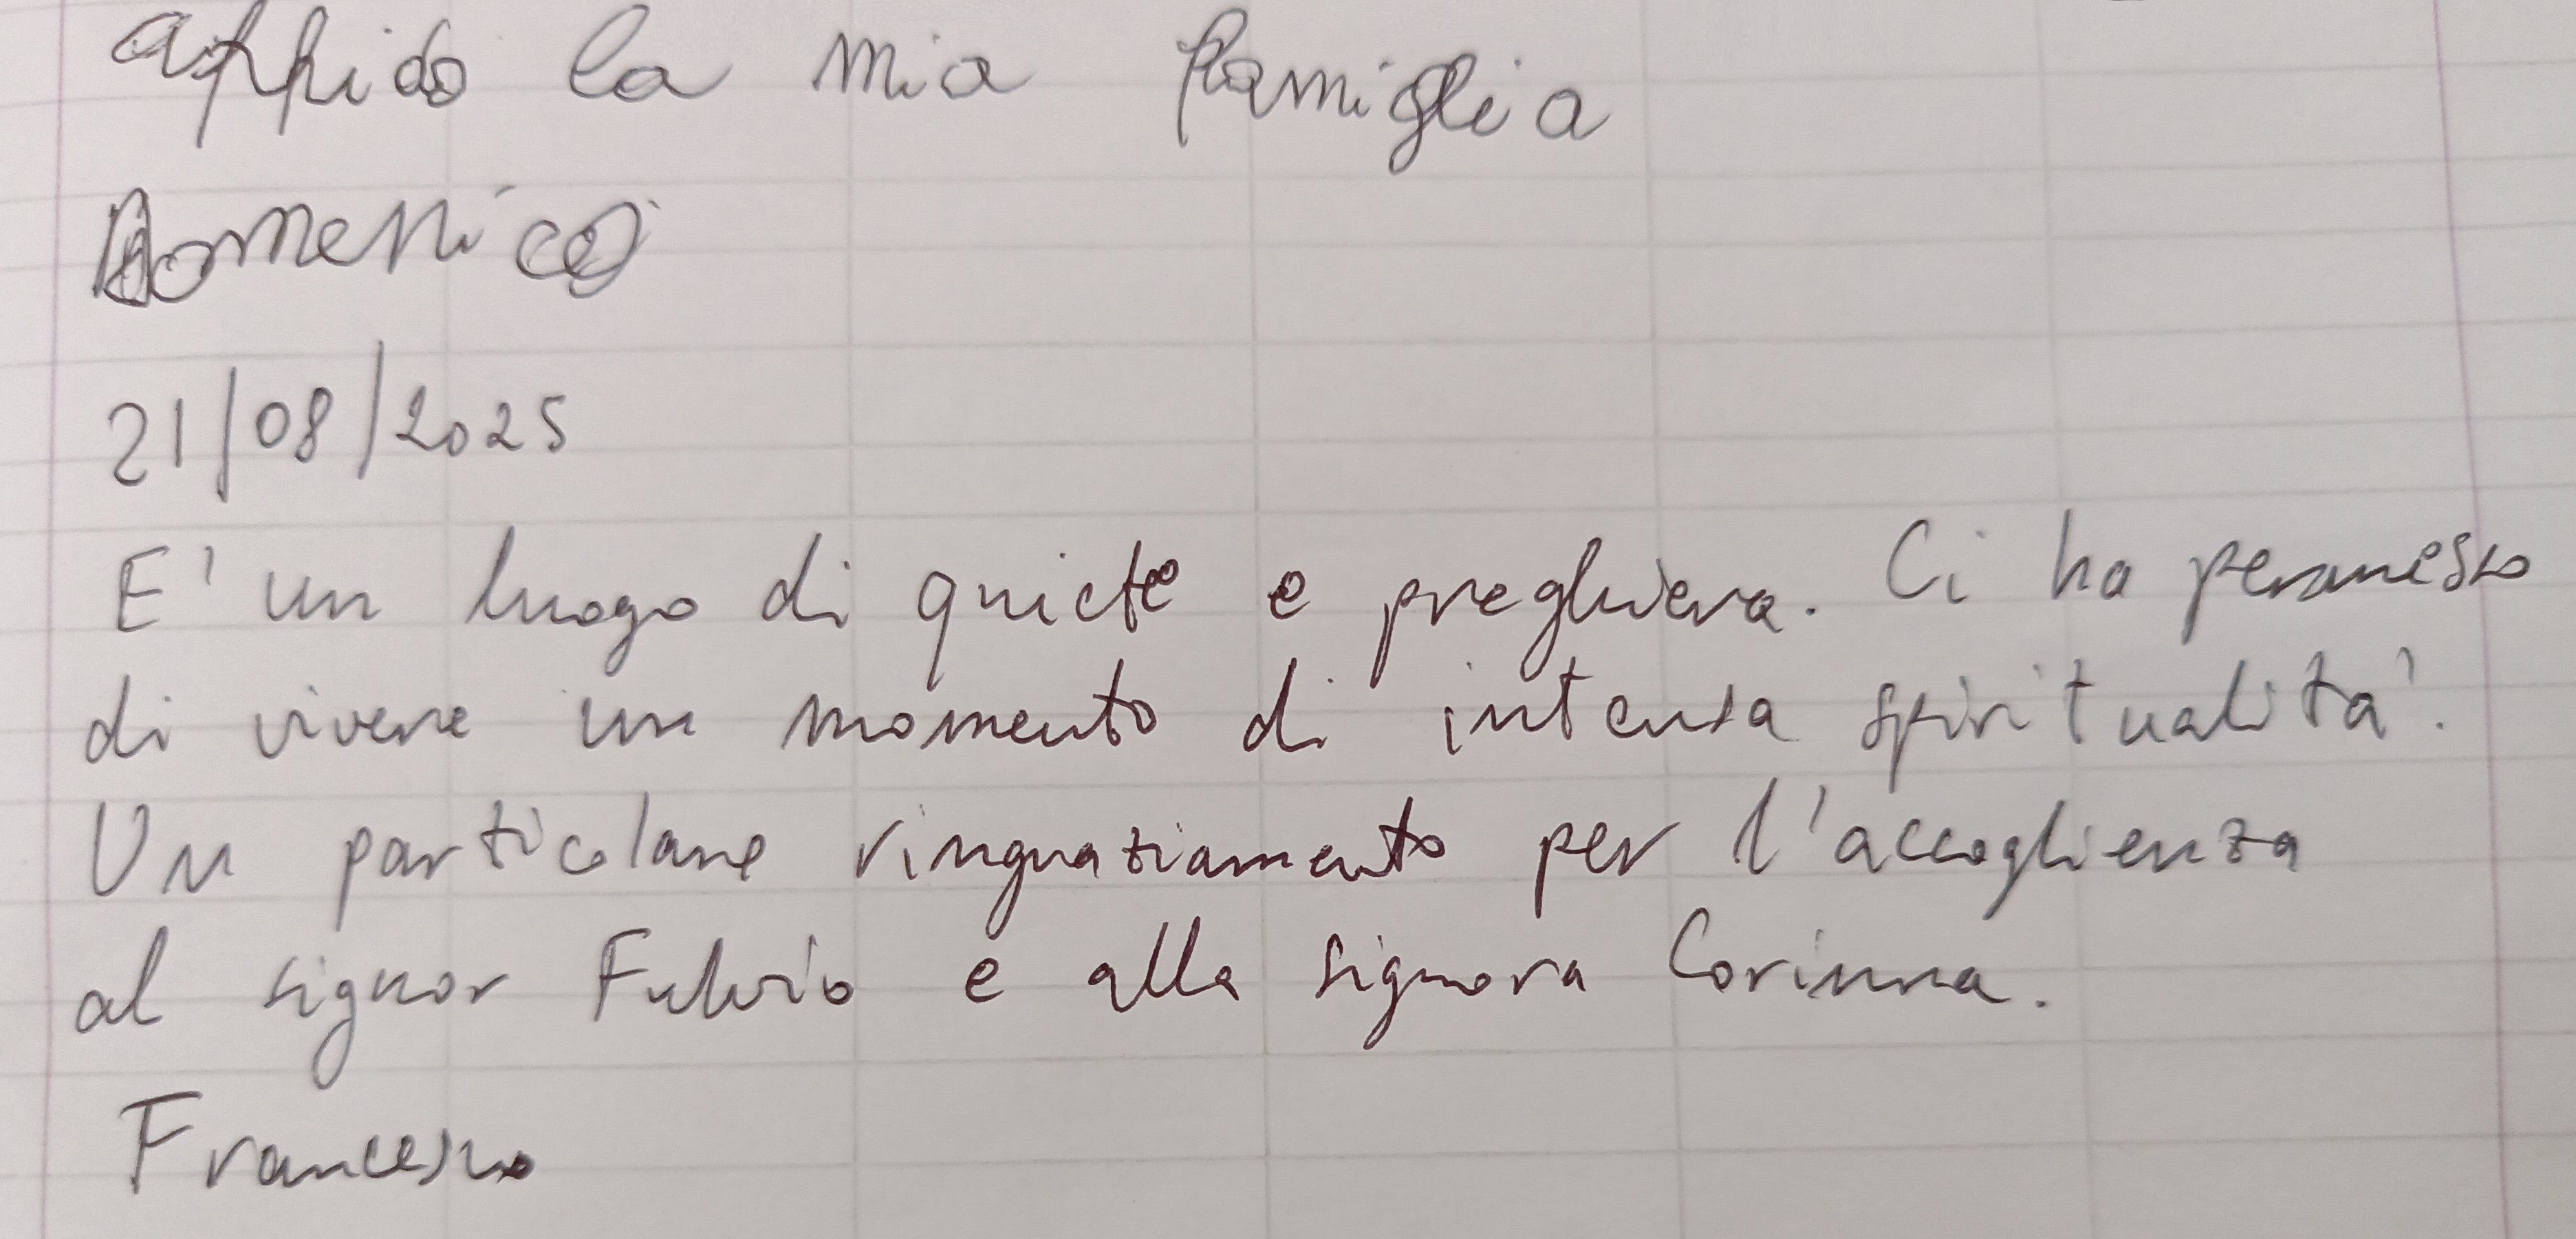 affido la mia famiglia
Domenico
21/08/2025
E' un luogo di quiete e preghiera. Ci ha permesso
di vivere un momento di intensa spiritualità.
Un particolare ringraziamento per l'accoglienza
al signor Fulvio e alla signora Corinna.
Francesco